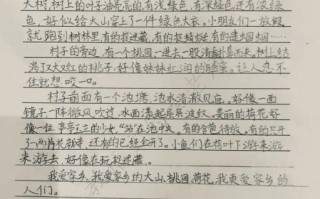 大树,树上的叶子油亮亮的有浅绿色,有深绿色还有浓
绿色,好似给大山穿上了一件绿色大衣。小朋友们一放假
就跑到树林里有的捉迷藏,有的
村子的旁边,有一个桃园,一进去一股清香扑鼻而来,树上结
满又大又红的桃子,好像妹妹红润的脸蛋。让人忍不
住就想咬一口。
村子前面有一个池塘,池水清澈见底,好像一面
镜子一阵微风吹过,水面荡起层层波纹,美丽的荷花好
像一位亭亭玉立的少女"站"在池中央,有的含苞待放,有的只开
了一两片花瓣,还有的已经全开了。小鱼们在荷叶下游来游
去游去,好像在玩捉迷藏。
我爱家乡,我爱家乡的大山,桃园,荷花,我更爱家乡的
人们。